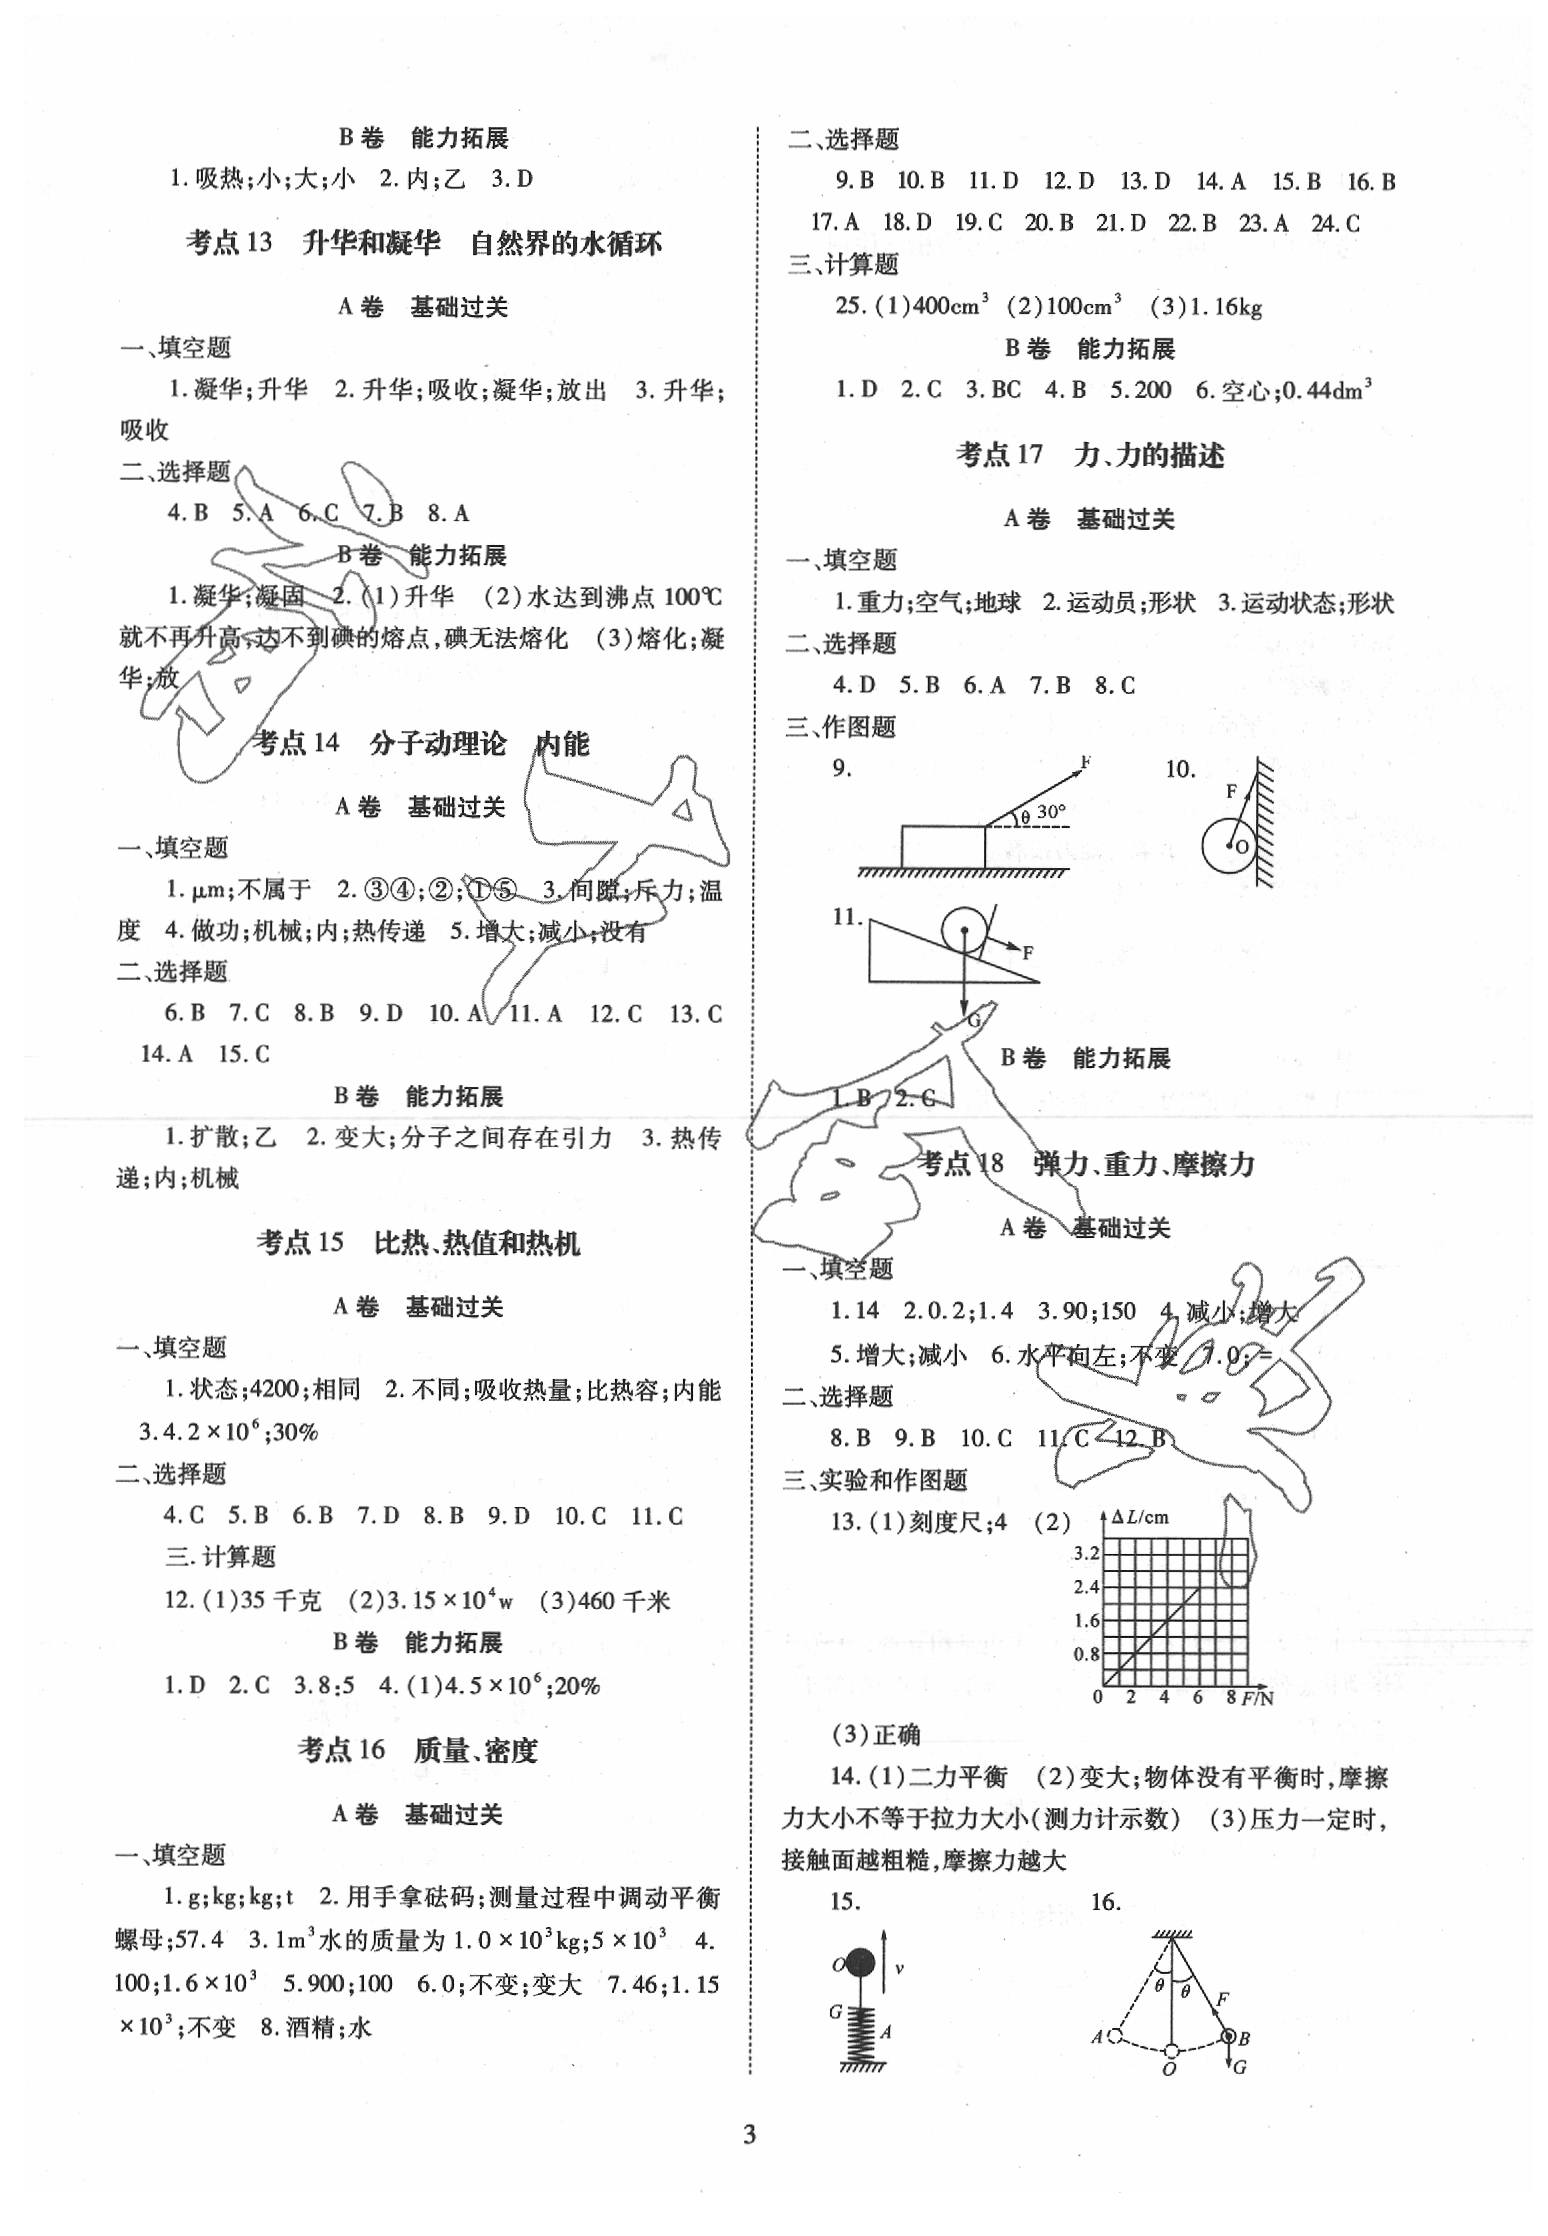 B 卷　能力拓展
1. 吸热;小;大;小　2. 内;乙　3. D
考点 13　升华和凝华　自然界的水循环
A 卷　基础过关
一、填空题
1. 凝华;升华　2. 升华;吸收;凝华;放出　3. 升华;
吸收
二、选择题
4. B　5. A　6. C　7. B　8. A
B 卷　能力拓展
1. 凝华;凝固　2. (1)升华　(2)水达到沸点 100℃
就不再升高,达不到碘的熔点,碘无法熔化　(3)熔化;凝
华;放
考点 14　分子动理论　内能
A 卷　基础过关
一、填空题
1. μm;不属于　2. ③④;②;①⑤　3. 间隙;斥力;温
度　4. 做功;机械;内;热传递　5. 增大;减小;没有
二、选择题
6. B　7. C　8. B　9. D　10. A　11. A　12. C　13. C
14. A　15. C
B 卷　能力拓展
1. 扩散;乙　2. 变大;分子之间存在引力　3. 热传
递;内;机械
考点 15　比热、热值和热机
A 卷　基础过关
一、填空题
1. 状态;4200;相同　2. 不同;吸收热量;比热容;内能
3. 4. 2×10⁶;30%
二、选择题
4. C　5. B　6. B　7. D　8. B　9. D　10. C　11. C
三. 计算题
12. (1)35 千克　(2)3. 15×10⁴w　(3)460 千米
B 卷　能力拓展
1. D　2. C　3. 8:5　4. (1)4. 5×10⁶;20%
考点 16　质量、密度
A 卷　基础过关
一、填空题
1. g;kg;kg;t　2. 用手拿砝码;测量过程中调动平衡
螺母;57. 4　3. 1m³水的质量为 1. 0×10³kg;5×10³　4.
100;1. 6×10³　5. 900;100　6. 0;不变;变大　7. 46;1. 15
×10³;不变　8. 酒精;水
二、选择题
9. B　10. B　11. D　12. D　13. D　14. A　15. B　16. B
17. A　18. D　19. C　20. B　21. D　22. B　23. A　24. C
三、计算题
25. (1)400cm³　(2)100cm³　(3)1. 16kg
B 卷　能力拓展
1. D　2. C　3. BC　4. B　5. 200　6. 空心;0. 44dm³
考点 17　力、力的描述
A 卷　基础过关
一、填空题
1. 重力;空气;地球　2. 运动员;形状　3. 运动状态;形状
二、选择题
4. D　5. B　6. A　7. B　8. C
三、作图题
9.　F　θ 30°　10.　F　O
11.　F　G
B 卷　能力拓展
1. B　2. C
考点 18　弹力、重力、摩擦力
A 卷　基础过关
一、填空题
1. 14　2. 0. 2;1. 4　3. 90;150　4. 减小;增大
5. 增大;减小　6. 水平向左;不变　7. 0; =
二、选择题
8. B　9. B　10. C　11. C　12. B
三、实验和作图题
13. (1)刻度尺;4　(2)　ΔL/cm
3.2
2.4
1.6
0.8
0　2　4　6　8 F/N
(3)正确
14. (1)二力平衡　(2)变大;物体没有平衡时,摩擦
力大小不等于拉力大小(测力计示数)　(3)压力一定时,
接触面越粗糙,摩擦力越大
15.　16.
O　v　G　A
θ　θ　F　A　B　O　G
3